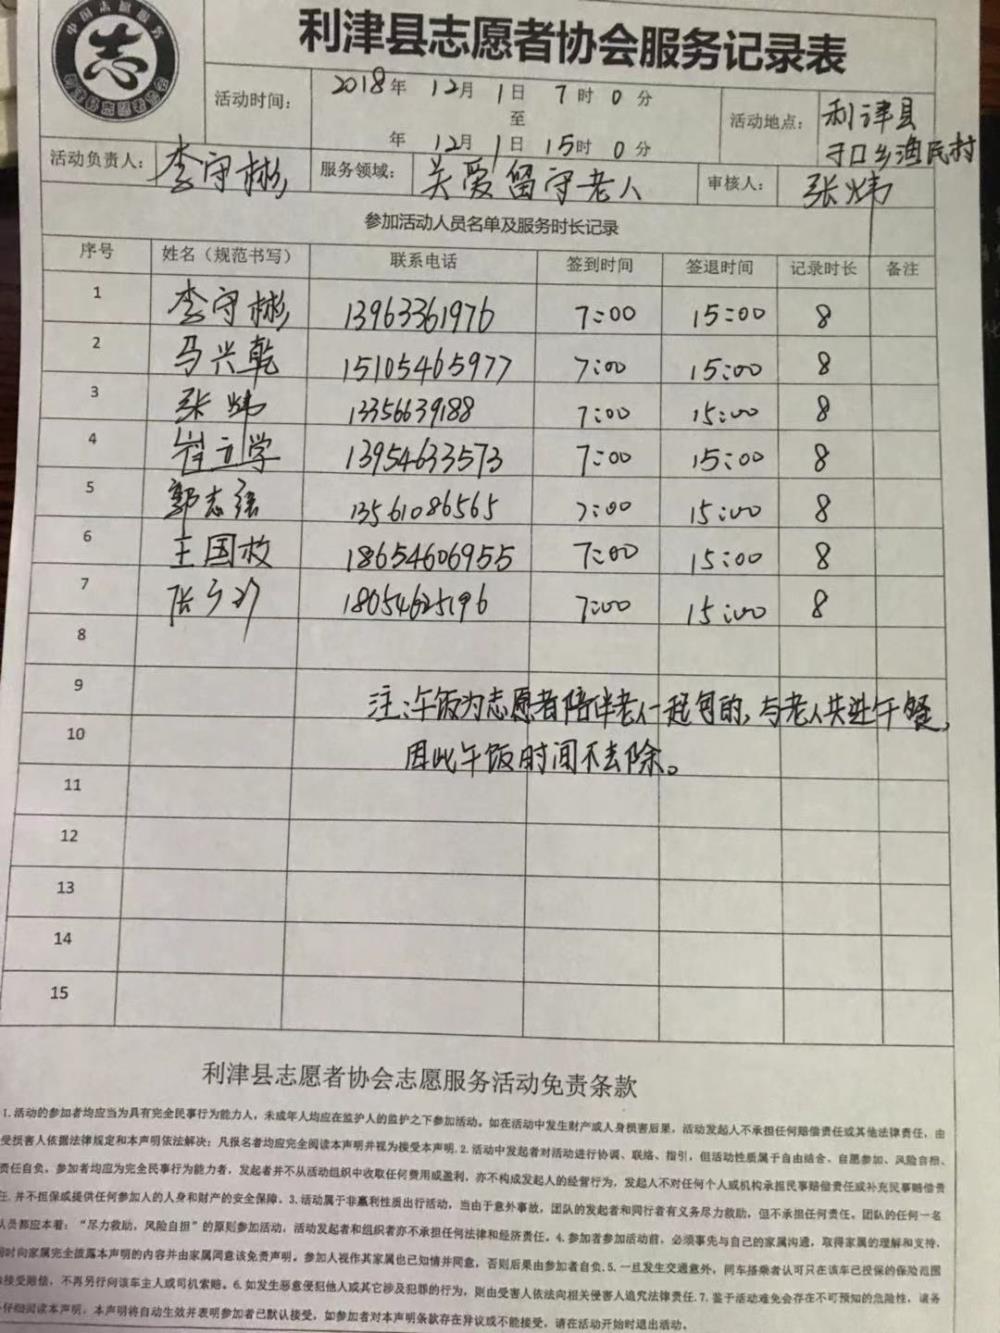 中国志愿服务
志
利津县志愿者协会服务记录表
活动时间： 2018年 12月 1日 7时 0分
至
年 12月 1日 15时 0分
活动地点： 利津县
刁口乡渔民村
活动负责人： 李守彬 服务领域： 关爱留守老人 审核人： 张炜
参加活动人员名单及服务时长记录
序号 姓名（规范书写） 联系电话 签到时间 签退时间 记录时长 备注
1 李守彬 13963361976 7:00 15:00 8
2 马兴乾 15105465977 7:00 15:00 8
3 张炜 13356639188 7:00 15:00 8
4 崔立学 13954633573 7:00 15:00 8
5 郭志强 13561086565 7:00 15:00 8
6 王国枚 18654606955 7:00 15:00 8
7 张 18054625196 7:00 15:00 8
8
9
注：午饭为志愿者陪伴老人一起包的，与老人共进午餐，
10
因此午饭时间不去除。
11
12
13
14
15
利津县志愿者协会志愿服务活动免责条款
1.活动的参加者均应当为具有完全民事行为能力人，未成年人均应在监护人的监护之下参加活动。如在活动中发生财产或人身损害后果，活动发起人不承担任何赔偿责任或其他法律责任，由
受损害人依据法律规定和本声明依法解决；凡报名者均应完全阅读本声明并视为接受本声明.2.活动中发起者对活动进行协调、联络、指引，但活动性质属于自由结合、自愿参加、风险自担、
责任自负。参加者均应为完全民事行为能力者，发起者并不从活动组织中收取任何费用或盈利，亦不构成发起人的经营行为，发起人不对任何个人或机构承担民事赔偿责任或补充民事赔偿责
任.并不担保或提供任何参加人的人身和财产的安全保障。3.活动属于非赢利性质出行活动，当由于意外事故，团队的发起者和同行者有义务尽力救助，但不承担任何责任。团队的任何一名
队员都应本着：“尽力救助，风险自担”的原则参加活动，活动发起者和组织者亦不承担任何法律和经济责任。4.参加者参加活动前，必须事先与自己的家属沟通，取得家属的理解和支持，
同时向家属完全披露本声明的内容并由家属同意该免责声明，参加人视作其家属也已知情并同意，否则后果由参加者自负.5.一旦发生交通意外，同车搭乘者认可只在该车已投保的保险范围
接受赔偿，不再另行向该车主人或司机索赔。6.如发生恶意侵犯他人或其它涉及犯罪的行为，则由受害人依法向相关侵害人追究法律责任.7.鉴于活动难免会存在不可预知的危险性，请务
仔细阅读本声明，本声明将自动生效并表明参加者已默认接受，如参加者对本声明条款存在异议或不能接受，请在活动开始时退出活动。